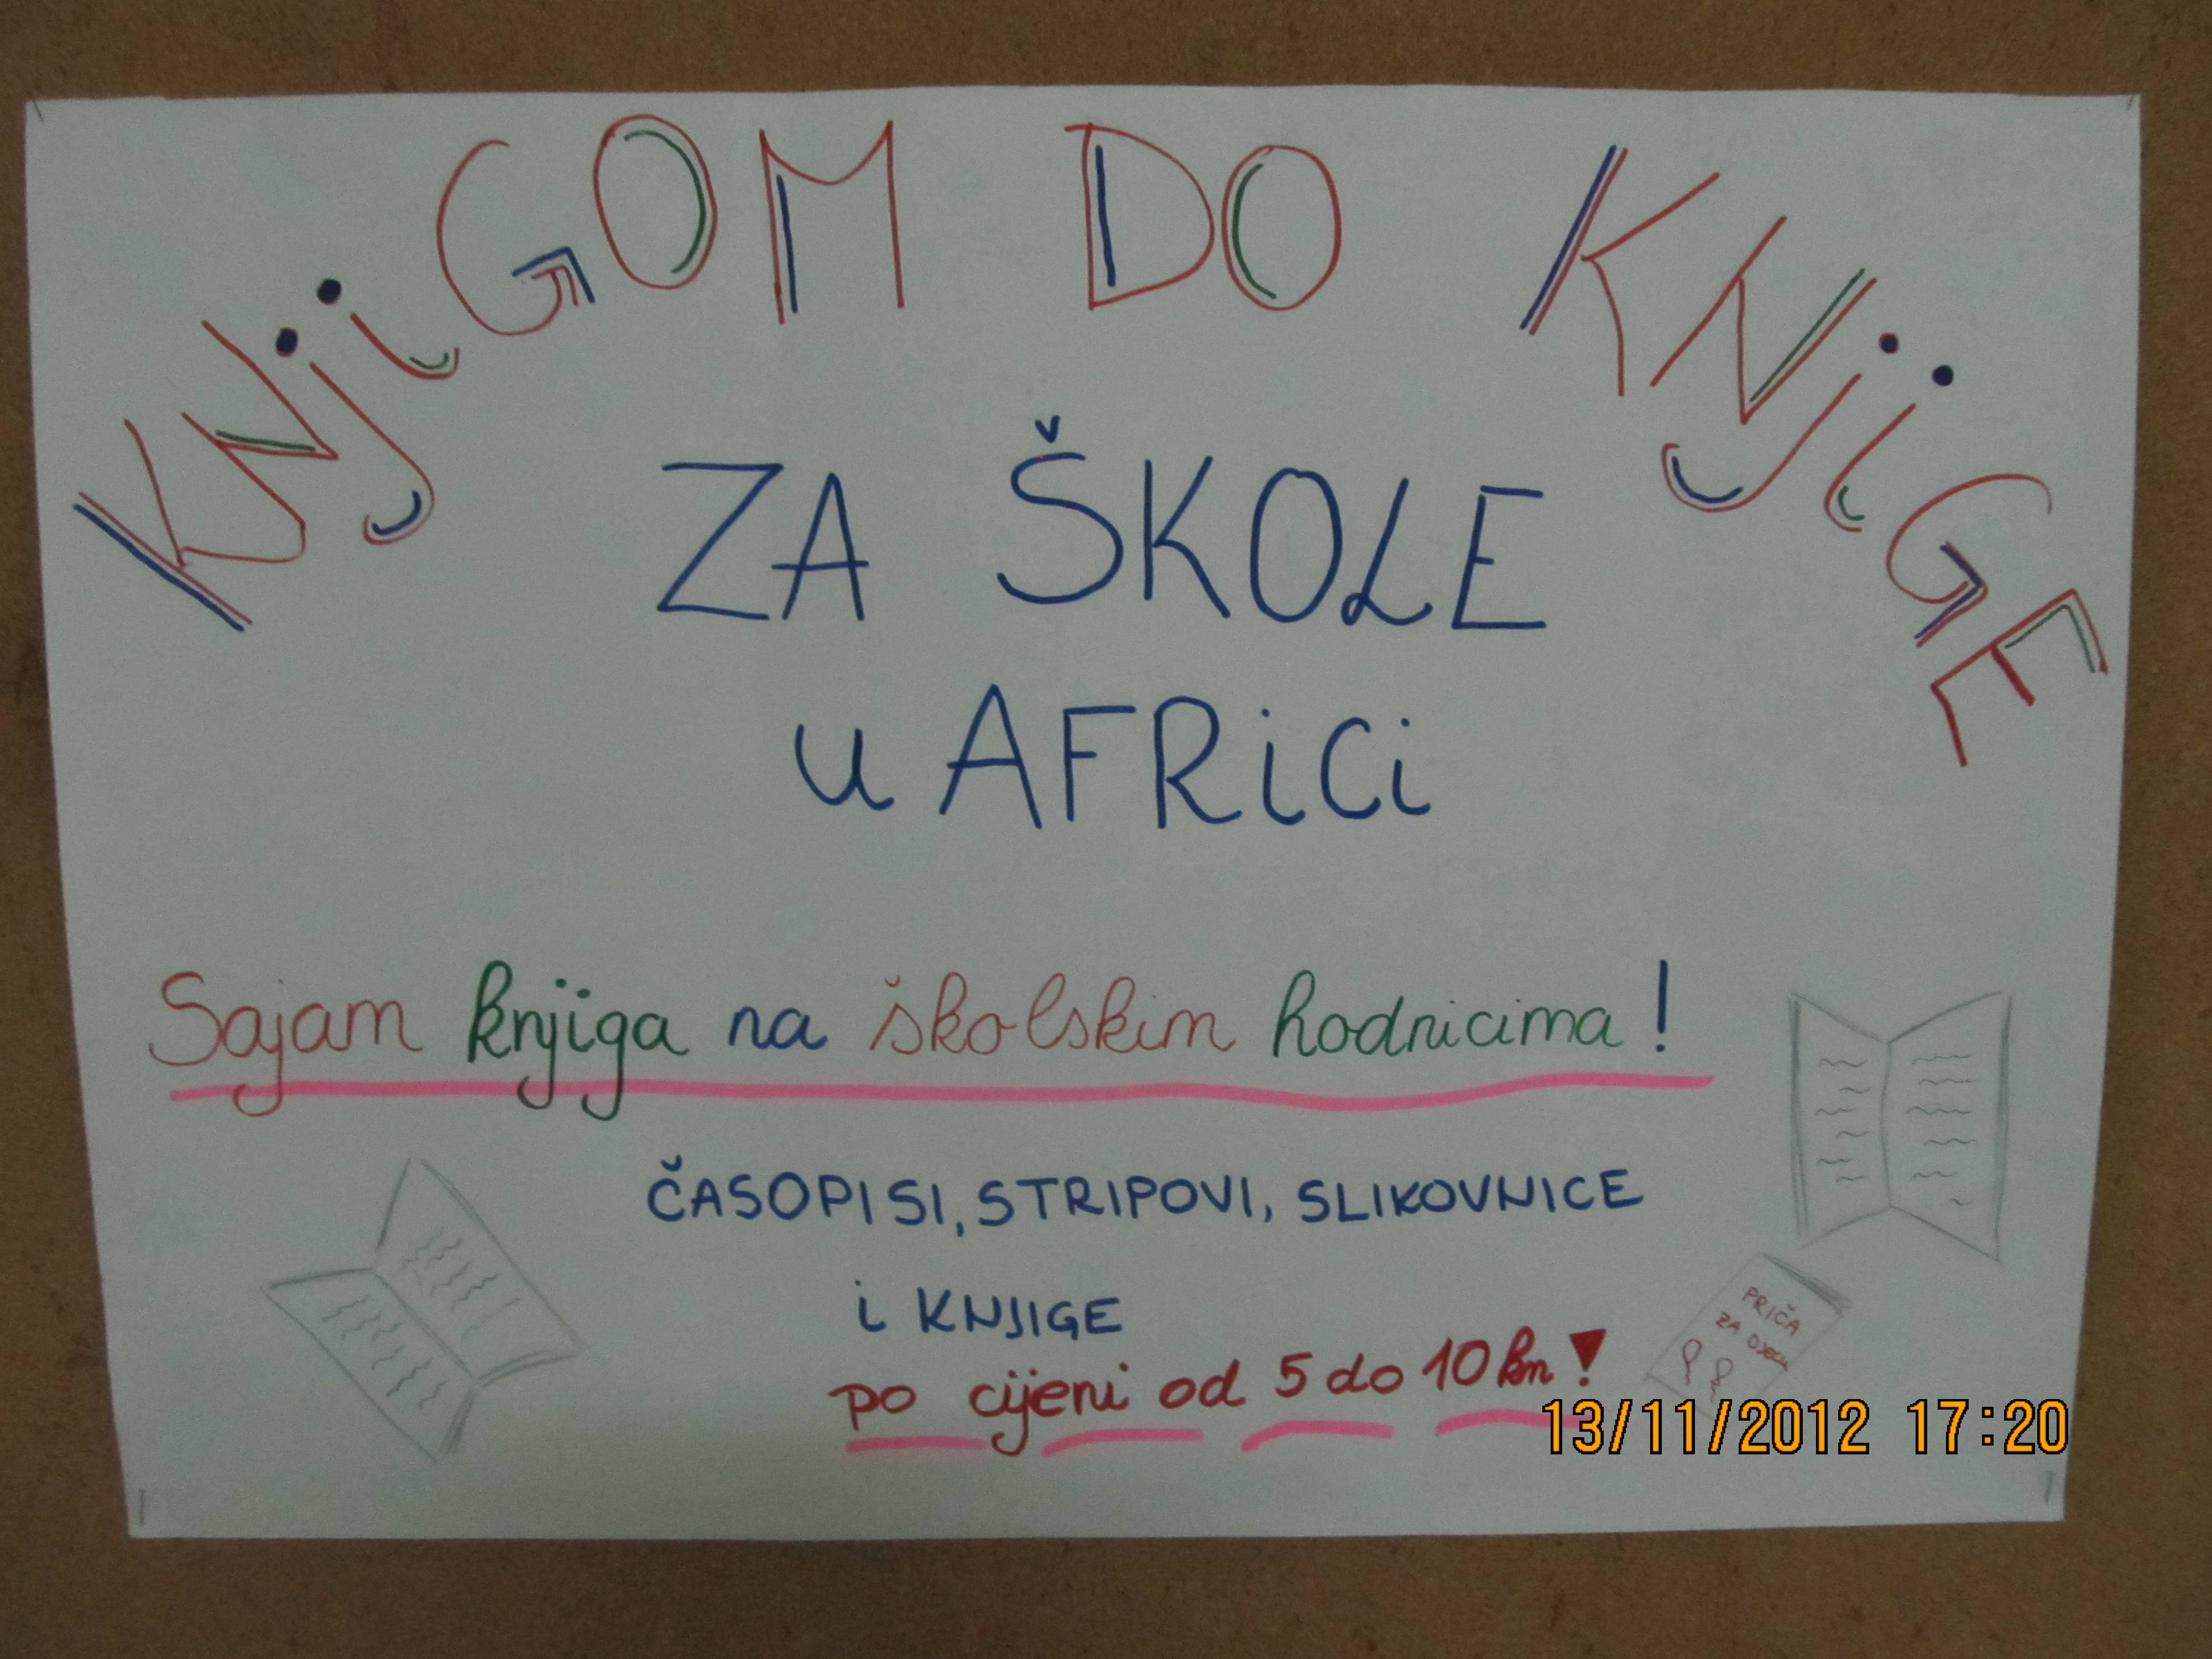 KNjiGOM DO KNjiGE
ZA ŠKOLE
u AFRiCi
Sajam knjiga na školskim hodnicima!
ČASOPISI, STRIPOVI, SLIKOVNICE
i KNJIGE
po cijeni od 5 do 10 kn!
PRIČA
ZA DJECU
13/11/2012 17:20